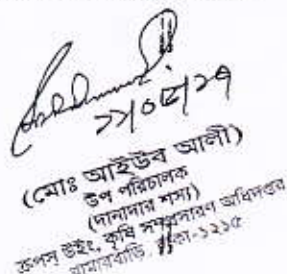 (মোঃ আইউব আলী)
উপ পরিচালক
(দানাদার শস্য)
ক্রপস উইং, কৃষি সম্প্রসারণ অধিদপ্তর
খামারবাড়ি, ঢাকা-১২১৫